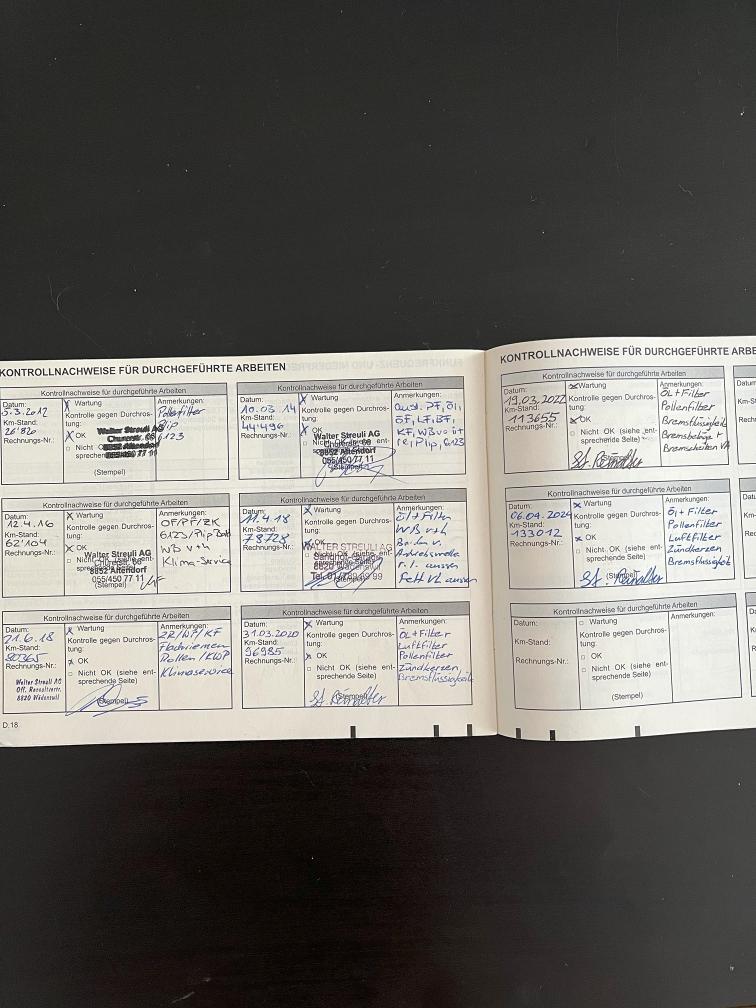 KONTROLLNACHWEISE FÜR DURCHGEFÜHRTE ARBEITEN
Kontrollnachweise für durchgeführte Arbeiten
Datum:
5.3.2012
Km-Stand:
26'820
Rechnungs-Nr.:
Wartung
Kontrolle gegen Durchros-
tung:
OK
Nicht
sprechende
(Stempel)
Walter Streuli AG
Churerstr. 66
8852 Altendorf
055/450 77 11
Anmerkungen:
Pollenfilter
Plip
6123
Kontrollnachweise für durchgeführte Arbeiten
Datum:
10.03.14
Km-Stand:
44'496
Rechnungs-Nr.:
Wartung
Kontrolle gegen Durchros-
tung:
OK
Walter Streuli AG
Churerstr. 66
8852 Altendorf
055/450 77 11
Anmerkungen:
PF, Öl,
ÖF, LF, BF,
KF, WB vo
Plip, 6123
Kontrollnachweise für durchgeführte Arbeiten
Datum:
12.4.16
Km-Stand:
62'104
Rechnungs-Nr.:
Wartung
Kontrolle gegen Durchros-
tung:
OK
Walter Streuli AG
Churerstr. 66
8852 Altendorf
055/450 77 11
(Stempel)
Anmerkungen:
OF/PF/ZK
6123/Plip Batt
WB v+h
Klima-Service
Kontrollnachweise für durchgeführte Arbeiten
Datum:
11.4.18
Km-Stand:
78728
Rechnungs-Nr.:
Wartung
Kontrolle gegen Durchros-
tung:
OK
Nicht OK (siehe ent-
WALTER STREULI AG
8820 Wädenswil
Anmerkungen:
Öl + Filter
WB v+h
Antriebswelle
r.l. aussen
Fett VL aussen
Kontrollnachweise für durchgeführte Arbeiten
Datum:
21.6.18
Km-Stand:
80365
Rechnungs-Nr.:
Wartung
Kontrolle gegen Durchros-
tung:
OK
Nicht OK (siehe ent-
sprechende Seite)
(Stempel)
Walter Streuli AG
Off. Renaultvertr.
8820 Wädenswil
Anmerkungen:
ZR/WP/KF
Flachriemen
Rollen/KWP
Klimaservice
Kontrollnachweise für durchgeführte Arbeiten
Datum:
31.03.2020
Km-Stand:
96985
Rechnungs-Nr.:
Wartung
Kontrolle gegen Durchros-
tung:
OK
Nicht OK (siehe ent-
sprechende Seite)
(Stempel)
Anmerkungen:
Öl + Filter
Luftfilter
Pollenfilter
Zündkerzen
Bremsflüssigkeit
D.18
KONTROLLNACHWEISE FÜR DURCHGEFÜHRTE ARBE
Kontrollnachweise für durchgeführte Arbeiten
Datum:
19.03.2022
Km-Stand:
113655
Rechnungs-Nr.:
Wartung
Kontrolle gegen Durchros-
tung:
OK
Nicht OK (siehe ent-
sprechende Seite)
(Stempel)
Anmerkungen:
Öl + Filter
Pollenfilter
Bremsflüssigkeit
Bremsbeläge +
Bremscheiben VA
Datum:
Km-S
Rech
Kontrollnachweise für durchgeführte Arbeiten
Datum:
06.04.2024
Km-Stand:
133012
Rechnungs-Nr.:
Wartung
Kontrolle gegen Durchros-
tung:
OK
Nicht OK (siehe ent-
sprechende Seite)
(Stempel)
Anmerkungen:
Öl + Filter
Pollenfilter
Luftfilter
Zündkerzen
Bremsflüssigkeit
Kontrollnachweise für durchgeführte Arbeiten
Datum:
Km-Stand:
Rechnungs-Nr.:
Wartung
Kontrolle gegen Durchros-
tung:
OK
Nicht OK (siehe ent-
sprechende Seite)
(Stempel)
Anmerkungen: